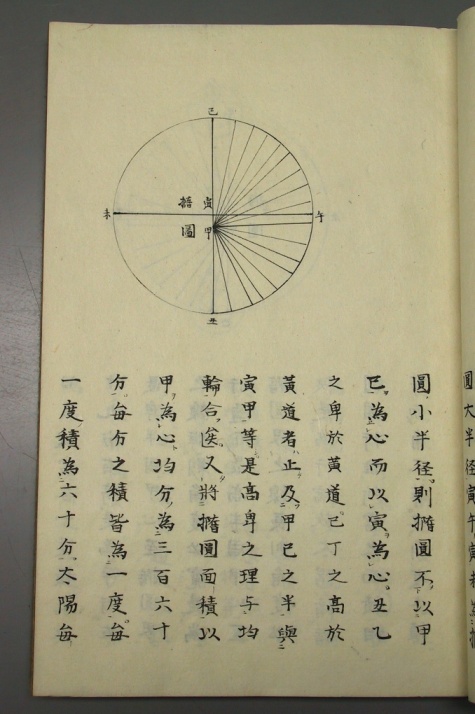 己
未
午
寅
甲
撱
圖
丑
圓大半径寅午
圓小半径則撱圓不以甲
己為心而以寅為心丑乙
之卑於黄道己丁之高於
黄道者止及甲己之半與
寅甲等是高卑之理与均
輪合矣又將撱圓面積以
甲為心均分為三百六十
分每分之積皆為一度每
一度積為六十分太陽每